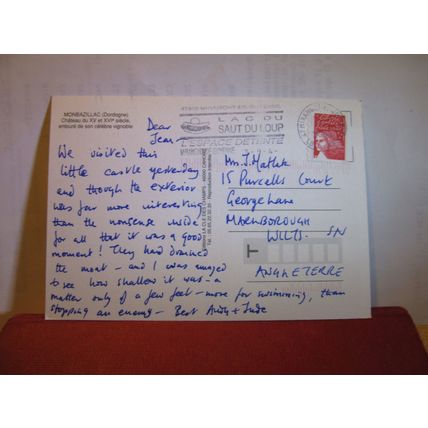 MONBAZILLAC (Dordogne)
Château du XV et XVIe siècle,
entouré de son célèbre vignoble
Dear
Jean -
We visited this
little castle yesterday
and though the exterior
was far more interesting
than the nonsense inside
for all that it was a good
moment! They had drained
the moat - and I was amazed
to see how shallow it was - a
matter only of a few feet - more for swimming, than
stopping an enemy - Best Andy + Jude
LAC DU
SAUT DU LOUP
L'ESPACE DETENTE
Mrs. J. Matlk
15 Purcells Court
George Lane
MARLBOROUGH
WILTS. SN
ANGLETERRE